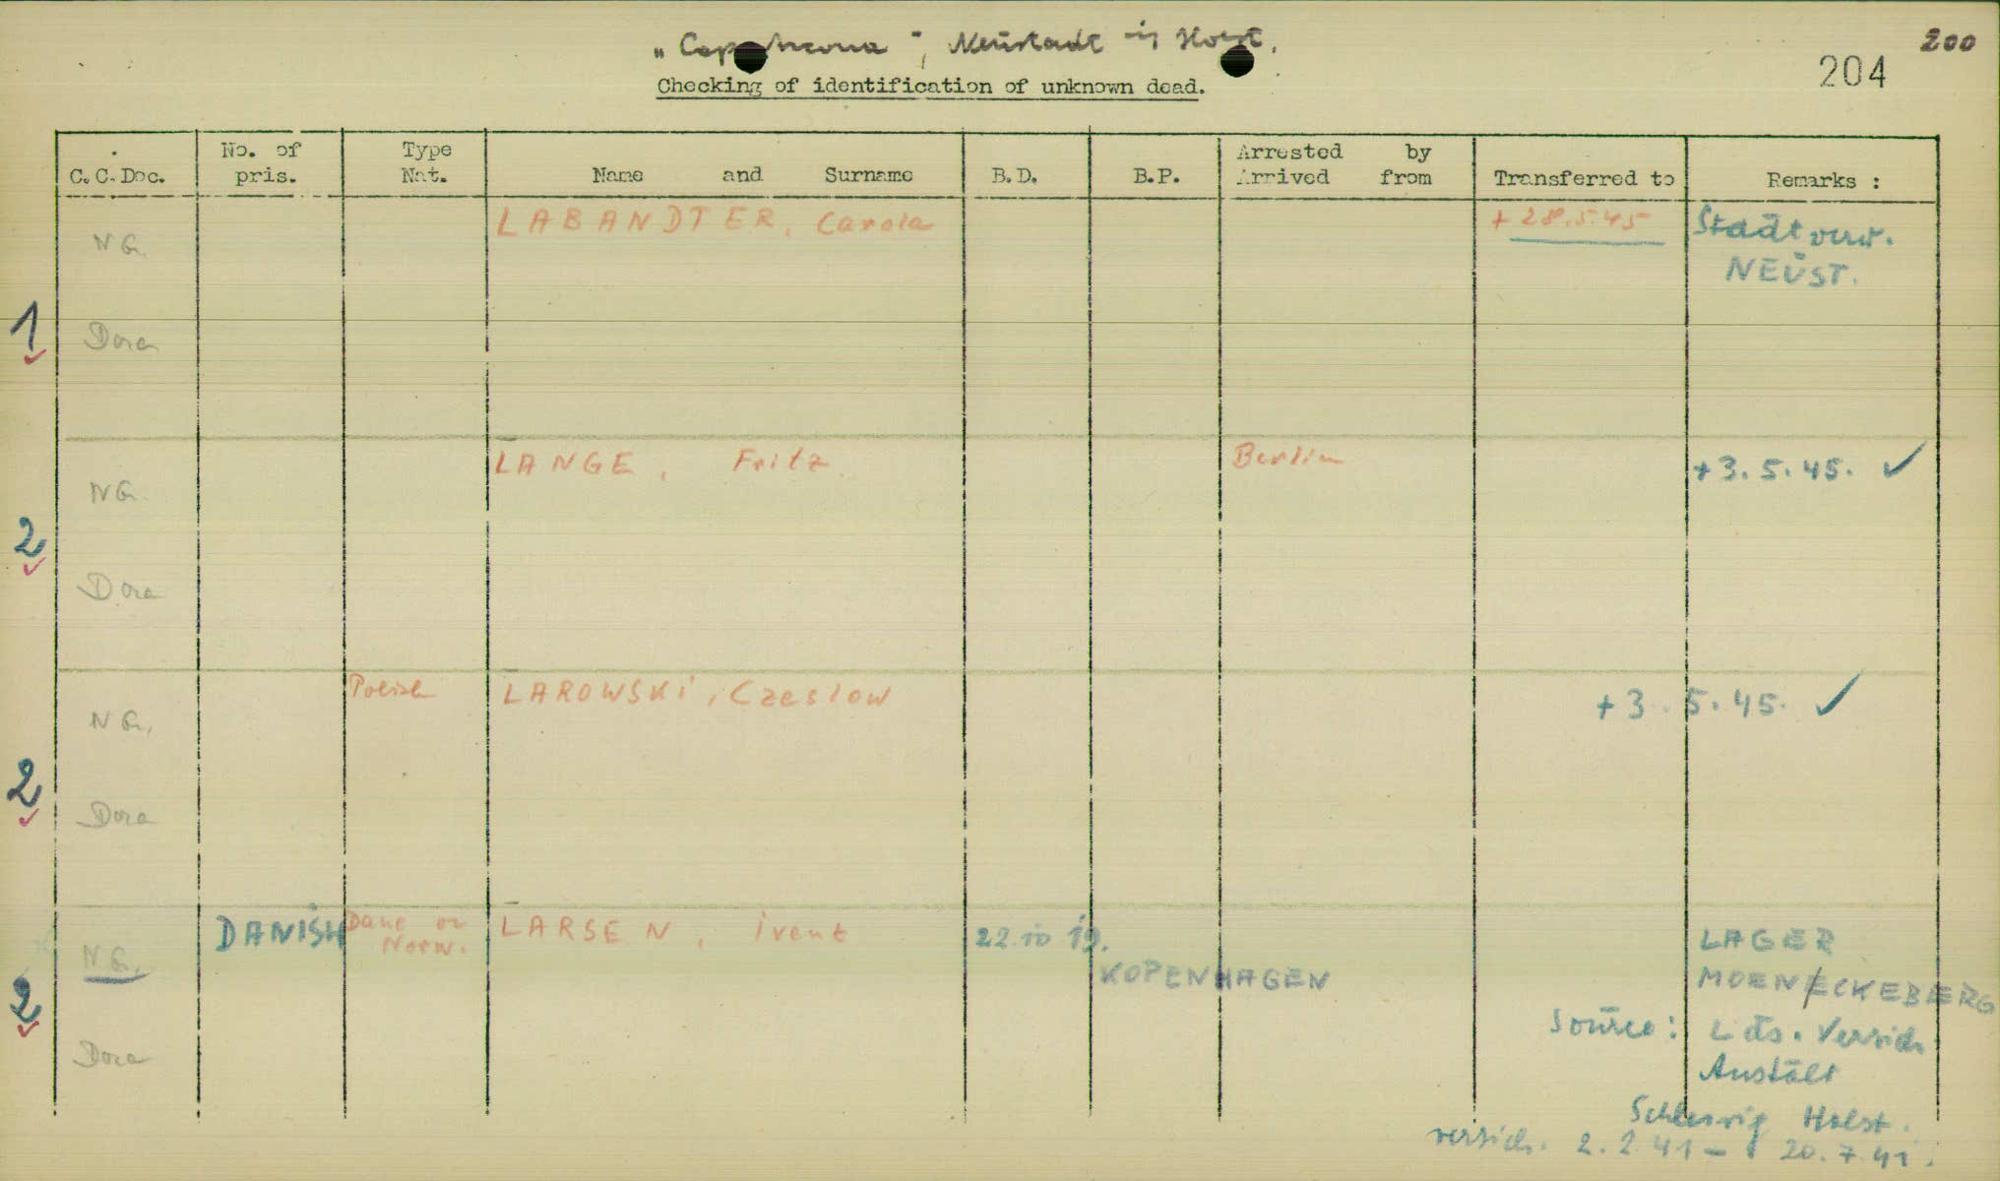 „Cap Arcona", Neustadt in Holst.
200
204
Checking of identification of unknown dead.
C.C.Doc. No. of pris. Type Nat. Name and Surname B.D. B.P. Arrested by Arrived from Transferred to Remarks :
1 NG. LABANDTER, Carola + 28.5.45 Stadtverw.
NEUST.
Dora
2 NG. LANGE, Fritz Berlin +3.5.45. ✓
Dora
2 NG. Polish LAROWSKI, Czeslow +3.5.45. ✓
Dora
2 NG. DANISH Dane or Norw. LARSEN, ivent 22.10 19. KOPENHAGEN LAGER
MOENECKEBERG
Source: Lds. Versich.
Anstalt
Dora
Schleswig Holst.
versich. 2.2.41 - 20.7.41.